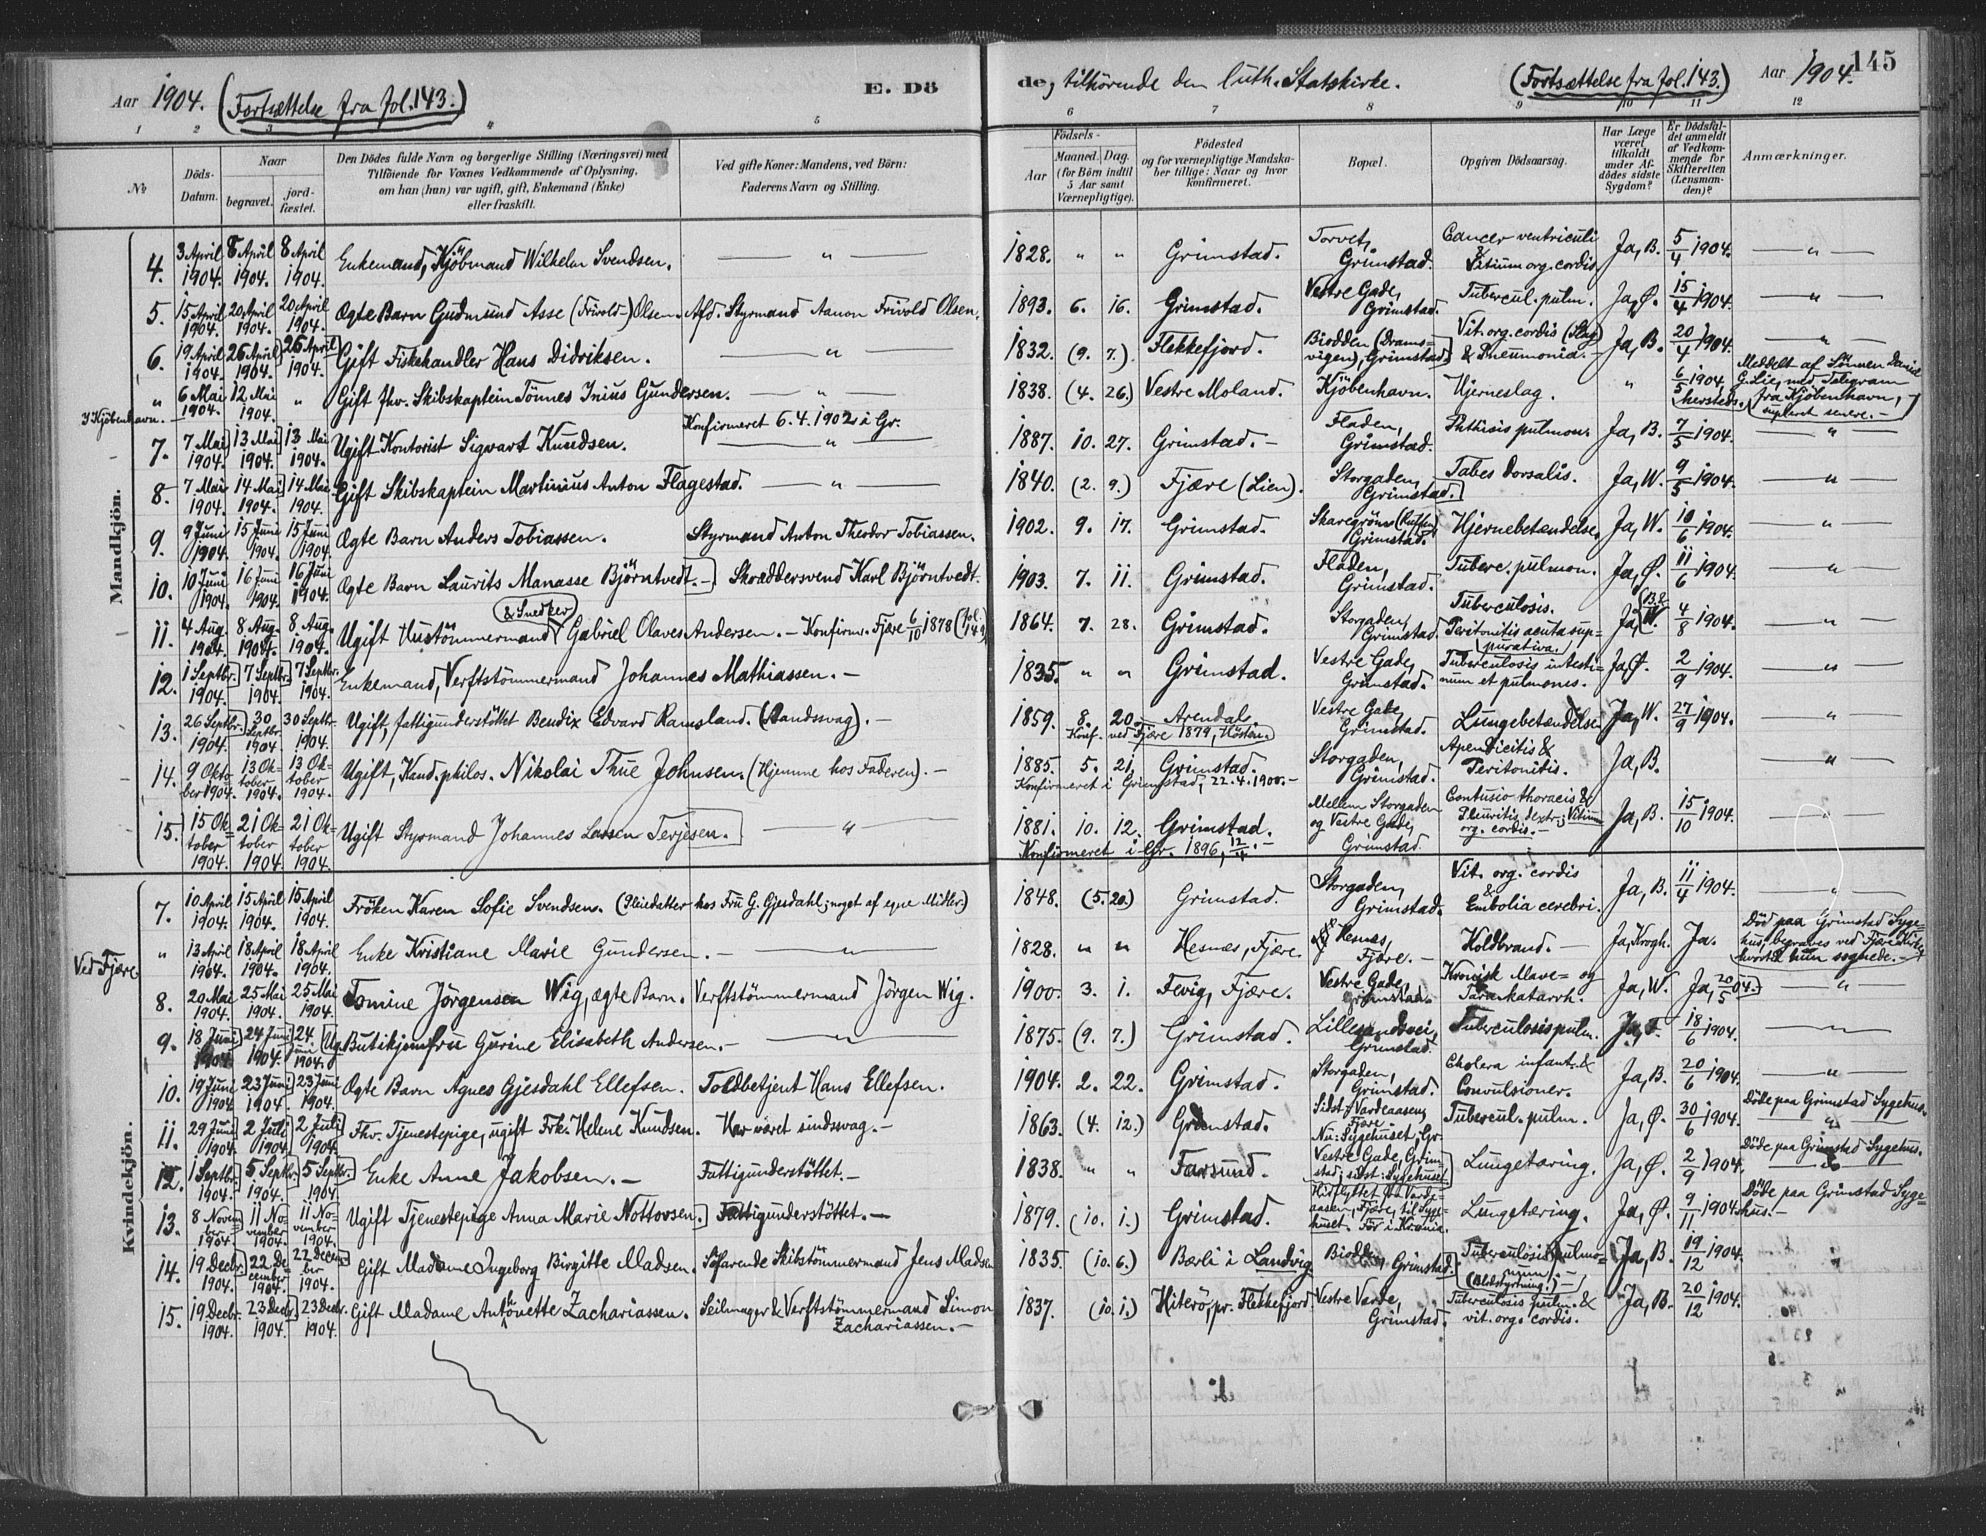 Aar 1904. (Fortsættelse fra fol. 143.) E. Döde, tilhörende den luth. Statskirke. (Fortsættelse fra fol. 143.) Aar 1904. 145
1 2 3 4 5 6 7 8 9 10 11 12
No
Döds-Datum.
Naar
begravet.
jord-fæstet.
Den Dödes fulde Navn og borgerlige Stilling (Næringsvei) med
Tilföiende for Voxnes Vedkommende af Oplysning.
om han (hun) var ugift, gift, Enkemand (Enke)
eller fraskilt.
Ved gifte Koner: Mandens, ved Börn:
Faderens Navn og Stilling.
Födsels-
Aar
Maaned. Dag.
(for Börn indtil
5 Aar samt
Værnepligtige).
Födested
og for værnepligtige Mandska-
ber tillige: Naar og hvor
konfirmeret.
Bopæl.
Opgiven Dödsaarsag.
Har Læge
været
tilkaldt
under Af-
dödes sidste
Sygdom?
Er Dödsfal-
det anmeldt
af Vedkom-
mende for
Skifteretten
(Lensman-
den)?
Anmærkninger.
Mandkjön.
4. 3 April 1904. 8 April 1904. 8 April 1904. Enkemand, Kjöbmand Wilhelm Svendsen. — „ — 1828. „ „ Grimstad. Torvet, Grimstad. Cancer ventriculi & Vitium org. cordis Ja, B. 5/4 1904. — „ —
5. 15 April 1904. 20 April 1904. 20 April 1904. Ægte Barn Gudmund Asse (Frivold-) Olsen. Afd. Styrmand Aanon Frivold Olsen. 1893. 6. 16. Grimstad. Vestre Gade, Grimstad. Tubercul. pulm. Ja, Ø. 15/4 1904. — „ —
6. 19 April 1904. 26 April 1904. 26 April 1904. Gift Fiskehandler Hans Didriksen. — „ — 1832. (9. 7.) Flekkefjord. Biodden (Dramsvigen), Grimstad. Vit. org. cordis (Slag) & Pneumonia. — Ja, B. 20/4 1904. — „ —
I Kjöbenhavn. „ 6 Mai 1904. 12 Mai 1904. „ Gift fhv. Skibskaptein Tönnes Inius Gundersen. — „ — 1838. (4. 26.) Vestre Moland. Kjöbenhavn. Hjerneslag. „ 6/5 1904, hersteds. Meddelt af Sönnen Daniel G. Lie, med Telegram fra Kjöbenhavn, supleret senere. —
7. 7 Mai 1904. 13 Mai 1904. 13 Mai 1904. Ugift Kontorist Sigvart Knudsen. Konfirmeret 6.4.1902 i Gr. — „ — 1887. 10. 27. Grimstad. — Fladen, Grimstad. Phthisis pulmon. Ja, B. 7/5 1904. — „ —
8. 7 Mai 1904. 14 Mai 1904. 14 Mai 1904. Gift Skibskaptein Martinius Anton Flagestad. — „ — 1840. (2. 9.) Fjære (Lien). Storgaden, Grimstad. Tabes dorsalis. Ja, W. 9/5 1904. — „ —
9. 9 Juni 1904. 15 Juni 1904. 15 Juni 1904. Ægte Barn Anders Tobiassen. Styrmand Anton Theodor Tobiassen. 1902. 9. 17. Grimstad. Skaregröns Grimstad. Hjernebetændelse. Ja, W. 10/6 1904. — „ —
10. 10 Juni 1904. 16 Juni 1904. 16 Juni 1904. Ægte Barn Laurits Manasse Björntvedt. — Skræddersvend Karl Björntvedt. 1903. 7. 11. Grimstad. Fladen, Grimstad. Tuberc. pulmon. Ja, Ø. 11/6 1904. — „ —
11. 4 Aug. 1904. 8 Aug. 1904. 8 Aug. 1904. Ugift Hustömmermand & Snedker Gabriel Olaves Andersen. — Konfirm. Fjære 6/10 1878 1864. 7. 28. Grimstad. Storgaden, Grimstad. Tuberculosis. Peritonitis acuta suppurativa. Ja, B. & W. 4/8 1904. — „ —
12. 1 Septbr. 1904. 7 Septbr. 1904. 7 Septbr. 1904. Enkemand, Verftstömmermand Johannes Mathiassen. — 1835. „ „ Grimstad. Vestre Gade, Grimstad. Tuberculosis intestinum et pulmones. Ja, Ø. 2/9 1904. — „ —
13. 26 Septbr. 1904. 30 Septbr 1904. 30 Septbr. 1904. Ugift, fattigunderstöttet Bendix Edvard Ramsland. (Aandssvag). — 1859. 8. 20. Arendal. Konf. ved Fjære 1879, Hösten. Vestre Gade, Grimstad. Lungebetændelse. Ja, W. 27/9 1904. — „ —
14. 9 Oktober 1904. 13 Oktober 1904. 13 Oktober 1904. Ugift, Kand. philos. Nikolai Thue Johnsen. (Hjemme hos Faderen). — 1885. 5. 21. Grimstad. Konfirmeret i Grimstad, 22.4.1900. — Storgaden, Grimstad. Apendicitis & Peritonitis. Ja, B. — „ —
15. 15 Oktober 1904. 21 Oktober 1904. 21 Oktober 1904. Ugift Styrmand Johannes Larsen Terjesen. — „ — 1881. 10. 12. Grimstad. Konfirmeret i Gr. 1896, 12/4. — Mellem Storgaden og Vestre Gade, Grimstad Contusio thoracis & Pleuritis dextr; Vitium org. cordis. — Ja, B. 15/10 1904. — „ —
Kvindekjön.
7. 10 April 1904. 15 April 1904. 15 April 1904. Fröken Karen Sofie Svendsen. (Pleiedatter hos Fru G. Gjesdahl; noget af egne Midler.) 1848. (5. 20.) Grimstad. Storgaden, Grimstad. Vit. org. cordis & Embolia cerebri. Ja, B. 11/4 1904. — „ —
Ved Fjære. „ 13 April 1904. 18 April 1904. 18 April 1904. Enke Kristiane Marie Gundersen. — „ — 1828. „ „ Hesnes, Fjære. Hesnes, Fjære. — Koldbrand. — Ja, Krogh. Ja. Död paa Grimstad Sygehus, begraves ved Fjære Kirke hvortil hun sognede. —
8. 20 Mai 1904. 25 Mai 1904. 25 Mai 1904. Tomine Jörgensen Wig, ægte Barn. Verftstömmermand Jörgen Wig. 1900. 3. 1. Fevig, Fjære. Vestre Gade, Grimstad. Kronisk Mave- og Tarmkatarrh. Ja, W. Ja, 20/5 04. — „ —
9. 18 Juni 1904. 24 Juni 1904. 24. Juni 1904. Ug. Butikjomfru Gurine Elisabeth Andersen. — „ — 1875. (9. 7.) Grimstad. Lillesandsvei, Grimstad. Tuberculosis pulm. 18/6 1904. — „ —
10. 19 Juni 1904 23 Juni 1904. 23 Juni 1904. Ægte Barn Agnes Gjesdahl Ellefsen. Toldbetjent Hans Ellefsen. 1904. 2. 22. Grimstad. Storgaden, Grimstad. Cholera infant. & Convulsioner. Ja, B. 20/6 1904. — „ —
11. 29 Juni 1904. 2 Juli 1904. 2 Juli 1904. Fhv. Tjenestepige, ugift Frk. Helene Knudsen. Har været sindssvag. — 1863. (4. 12.) Grimstad. Sidst: Vardeaasen, Fjære. Nu: Sygehuset, Gr. Tubercul. pulm. Ja, Ø. 30/6 1904. Döde paa Grimstad Sygehus.
12. 1 Septbr. 1904. 5 Septbr. 1904. 5 Septbr. 1904 Enke Anne Jakobsen. — Fattigunderstöttet. — 1838. „ „ Farsund. Vestre Gade, Grimstad; sidst: Sygehuset. Lungetæring. Ja, Ø. 2/9 1904. Döde paa Grimstad Sygehus.
13. 8 November 1904. 11 November 1904. 11 November 1904. Ugift Tjenestepige Anna Marie Nottovsen. Fattigunderstöttet. — 1879. (10. 1.) Grimstad. Hidflyttet fra Vardeaasen, Fjære, til Sygehuset. För i Kr.ania. Lungetæring. Ja, Ø. 9/11 1904. Döde paa Grimstad Sygehus. —
14. 19 Decbr. 1904. 22 December 1904. 22 December 1904. Gift Madame Ingeborg Birgitte Madsen. Söfarende Skibstömmermand Jens Madsen 1835. (10. 6.) Bærli i Landvig. Biodden, Grimstad. Tuberculosis pulmonum. — (Blodstyrtning.) — Ja, B. 19/12 1904.
15. 19 Decbr. 1904. 23 Decbr. 1904. 23 Decbr. 1904. Gift Madame Antönette Zachariassen. Seilmager & Verftstömmermand Simon Zachariassen. — 1837. (10. 1.) Hiterö, pr. Flekkefjord. Vestre Varde, Grimstad. Tuberculosis pulm. & vit. org. cordis. Ja, B. 20/12 1904.